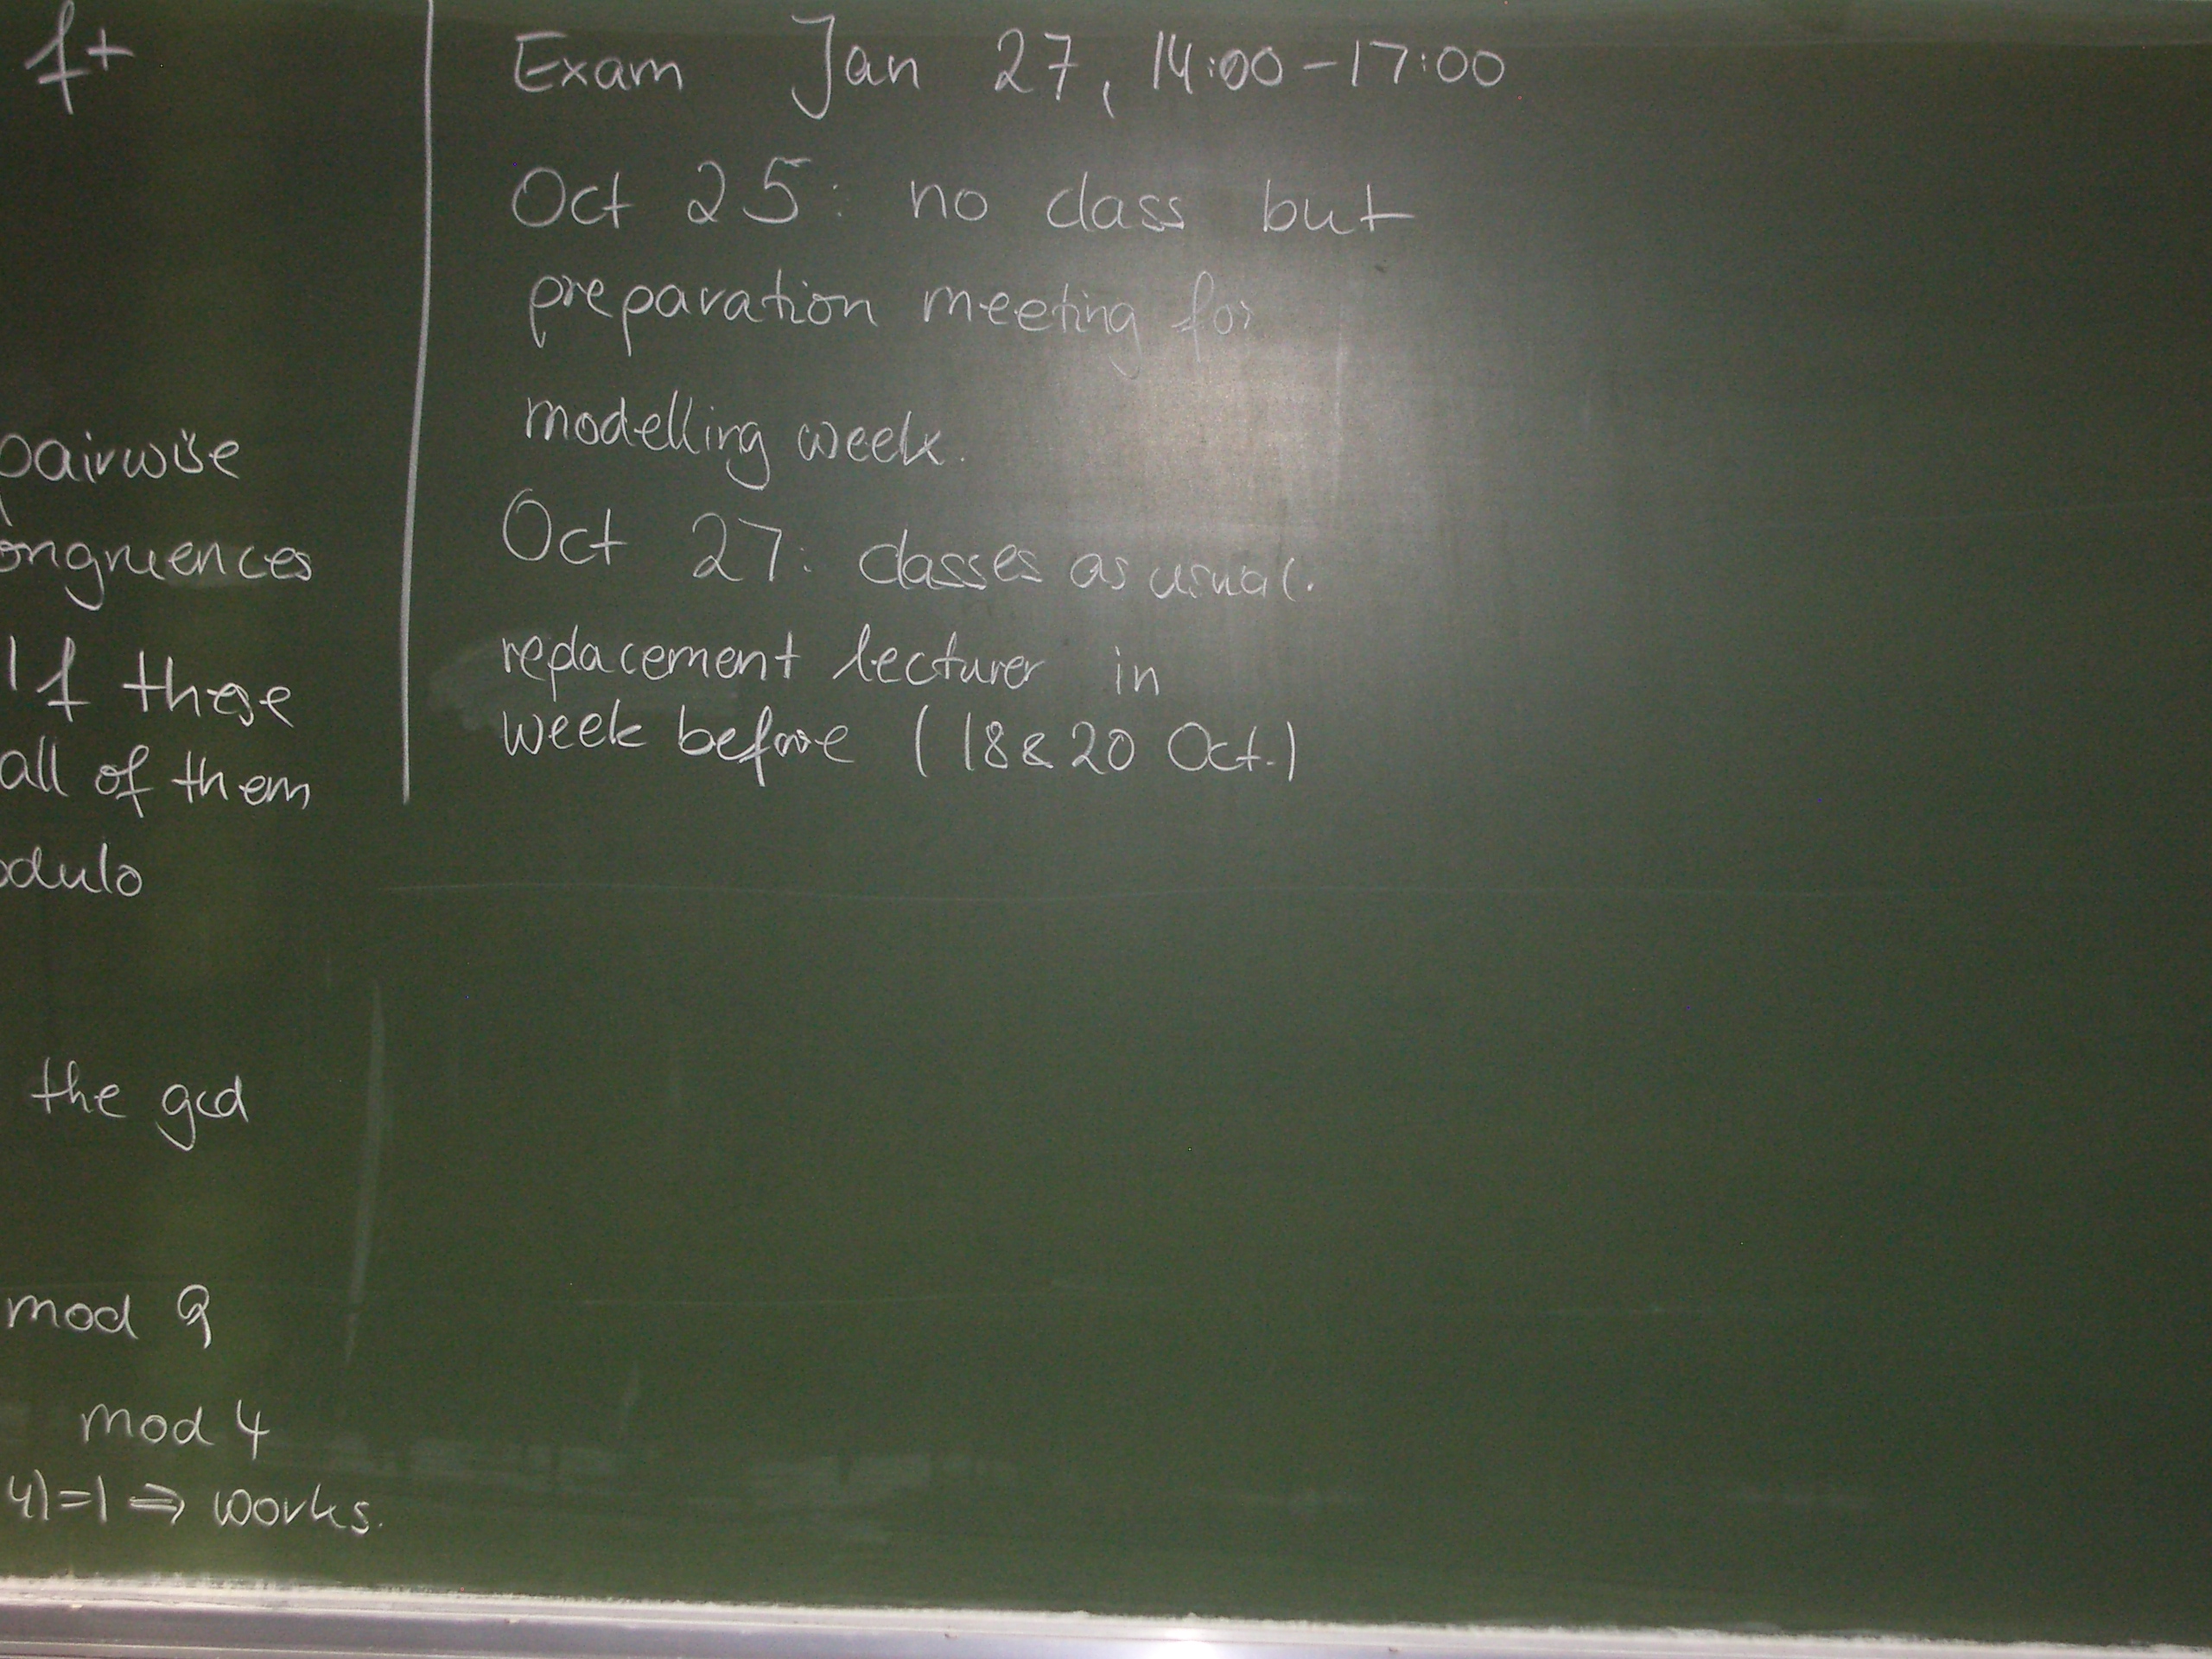 f+
pairwise
ongruences
If these
all of them
odulo
the gcd
mod 9
mod 4
4)=1 ⇒ works.
Exam Jan 27, 14:00-17:00
Oct 25: no class but
preparation meeting for
modelling week.
Oct 27: classes as usual.
replacement lecturer in
week before (18 & 20 Oct.)